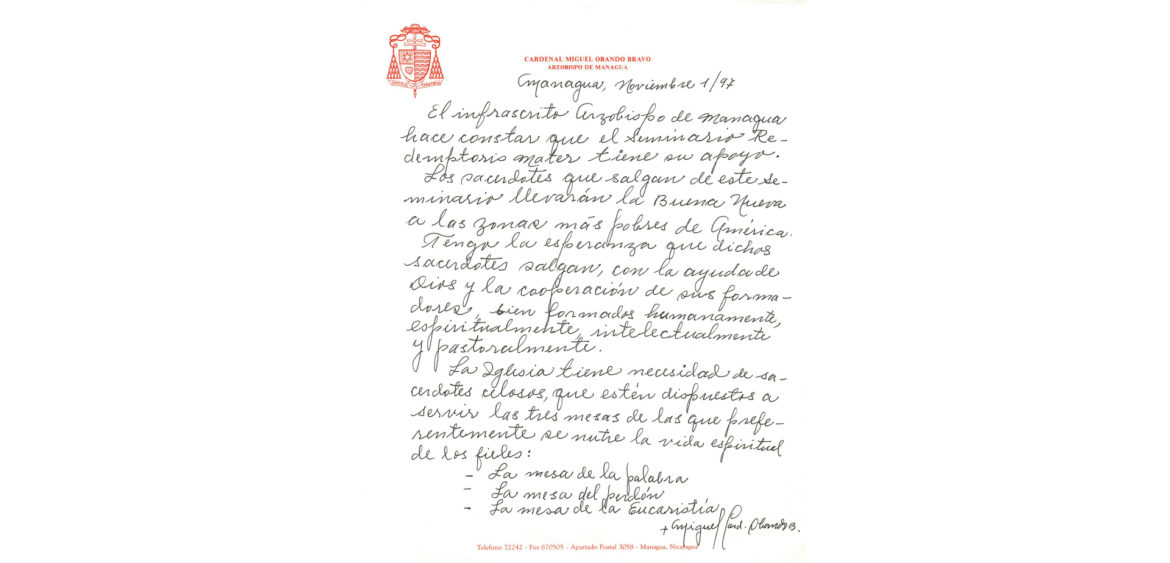 CARDENAL MIGUEL OBANDO BRAVO
ARZOBISPO DE MANAGUA
Managua, Noviembre 1/97
El infrascrito Arzobispo de Managua
hace constar que el Seminario Re-
demptoris Mater tiene su apoyo.
Los sacerdotes que salgan de este se-
minario llevarán la Buena Nueva
a las zonas más pobres de América.
Tengo la esperanza que dichos
sacerdotes salgan, con la ayuda de
Dios y la cooperación de sus forma-
dores, bien formados humanamente,
espiritualmente, intelectualmente
y pastoralmente.
La Iglesia tiene necesidad de sa-
cerdotes celosos, que estén dispuestos a
servir las tres mesas de las que prefe-
rentemente se nutre la vida espiritual
de los fieles:
- La mesa de la palabra
- La mesa del perdón
- La mesa de la Eucaristía
+ Miguel Card. Obando B.
Telefono 72242 - Fax 670505 - Apartado Postal 3058 - Managua, Nicaragua